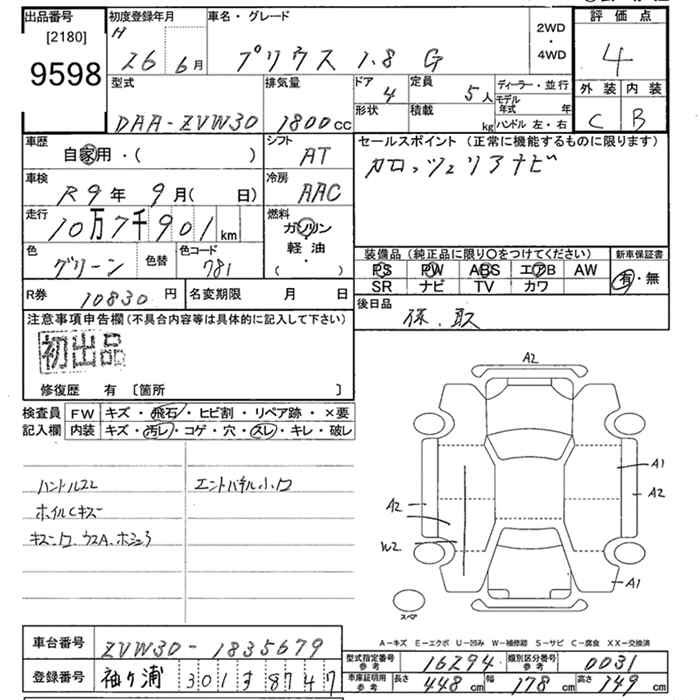 出品番号
[2180]
9598
初度登録年月
H
26 6月
車名・グレード
プリウス 1.8 G
2WD
・
4WD
評価点
4
型式
DAA-ZVW30
排気量
1800cc
ドア
4
形状
定員
5人
積載
kg
ディーラー・並行
モデル年式 年
ハンドル 左・右
外装 内装
C B
車歴
自家用・( )
シフト
AT
セールスポイント (正常に機能するものに限ります)
カロッツェリアナビ
車検
R9年 9月( 日)
冷房
AAC
走行
10万7千901km
燃料
ガソリン
軽油
( ・ )
色
グリーン
色替
色コード
781
装備品 (純正品に限り○をつけてください)
PS PW ABS エアB AW
SR ナビ TV カワ
新車保証書
有・無
R券 10830円
名変期限 月 日
後日品
保、取
注意事項申告欄 (不具合内容等は具体的に記入して下さい)
初出品
修復歴 有 〔箇所 〕
検査員
記入欄
FW キズ・飛石・ヒビ割・リペア跡・×要
内装 キズ・汚レ・コゲ・穴・スレ・キレ・破レ
ハンドルスレ
ホイルCキズ
エンドパネル小凹
A2
A1
A2
A2
W2
A1
スペア
A-キズ E-エクボ U-凹み W-補修跡 S-サビ C-腐食 XX-交換済
車台番号 ZVW30-1835679
登録番号 袖ヶ浦 301 す 8747
型式指定番号
参考
16294
類別区分番号
参考
0031
車庫証明用
参考
長さ 448cm 幅 178cm 高さ 149cm